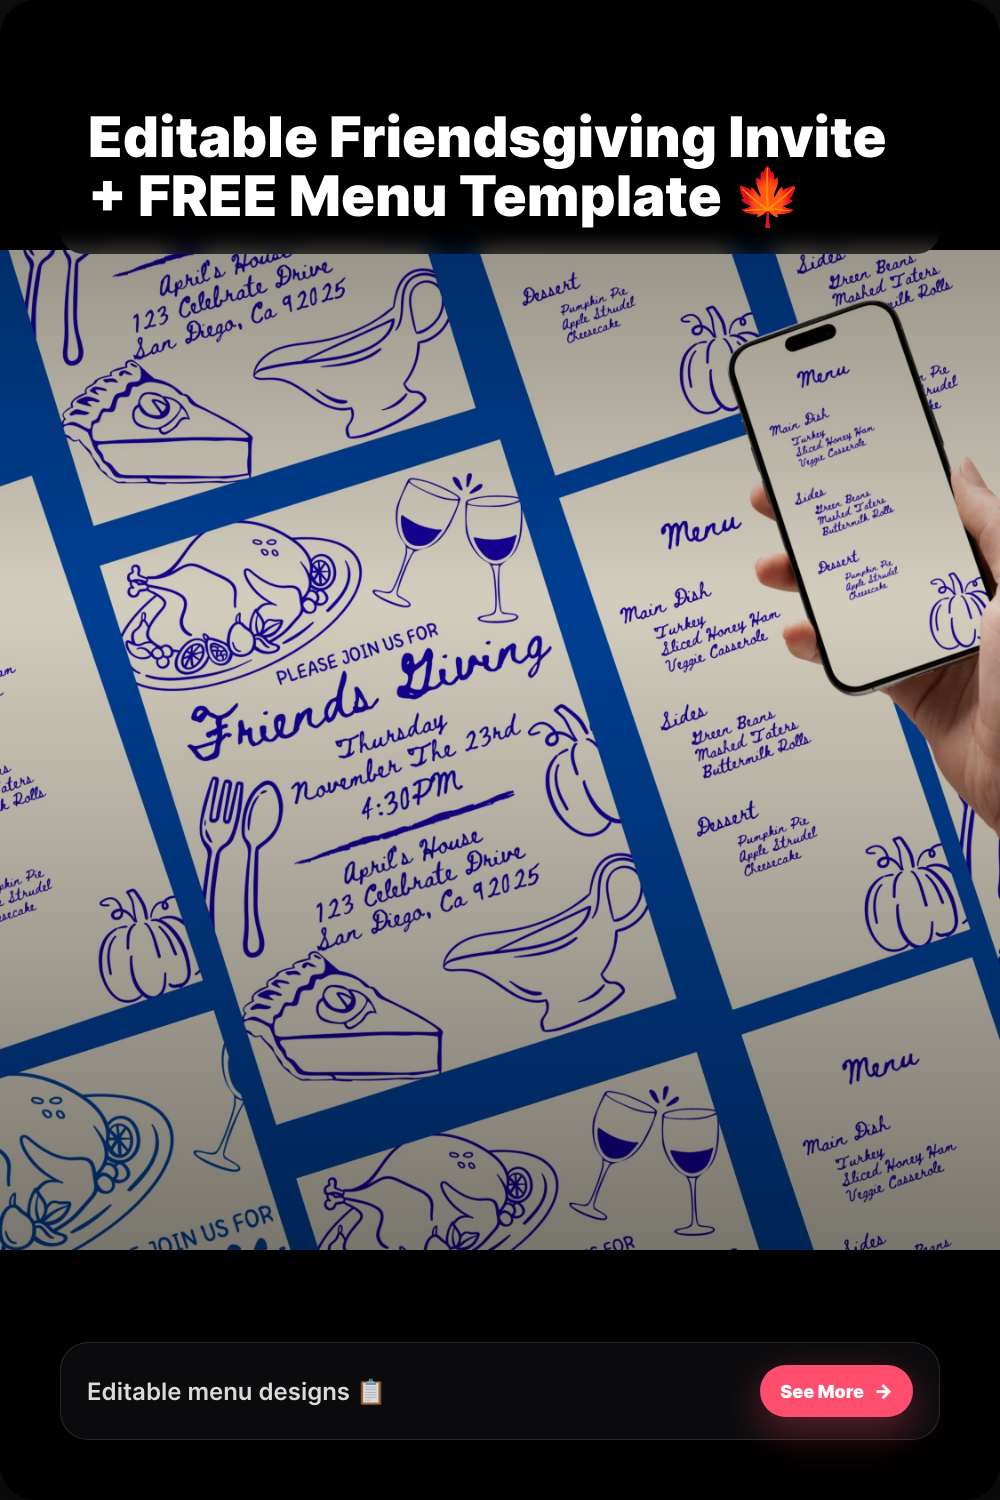 Editable Friendsgiving Invite
+ FREE Menu Template 🍁
April's House
123 Celebrate Drive
San Diego, Ca 92025
Dessert
Pumpkin Pie
Apple Strudel
Cheesecake
Sides
Green Beans
Mashed Taters
milk Rolls
Menu
Main Dish
Turkey
Sliced Honey Ham
Veggie Casserole
Sides
Green Beans
Mashed Taters
Buttermilk Rolls
Dessert
Pumpkin Pie
Apple Strudel
Cheesecake
PLEASE JOIN US FOR
Friends Giving
Thursday
November The 23rd
4:30PM
April's House
123 Celebrate Drive
San Diego, Ca 92025
Menu
Main Dish
Turkey
Sliced Honey Ham
Veggie Casserole
Sides
Green Beans
Mashed Taters
Buttermilk Rolls
Dessert
Pumpkin Pie
Apple Strudel
Cheesecake
JOIN US FOR
US FOR
Menu
Main Dish
Turkey
Sliced Honey Ham
Veggie Casserole
Sides
Beans
Editable menu designs 📋
See More →